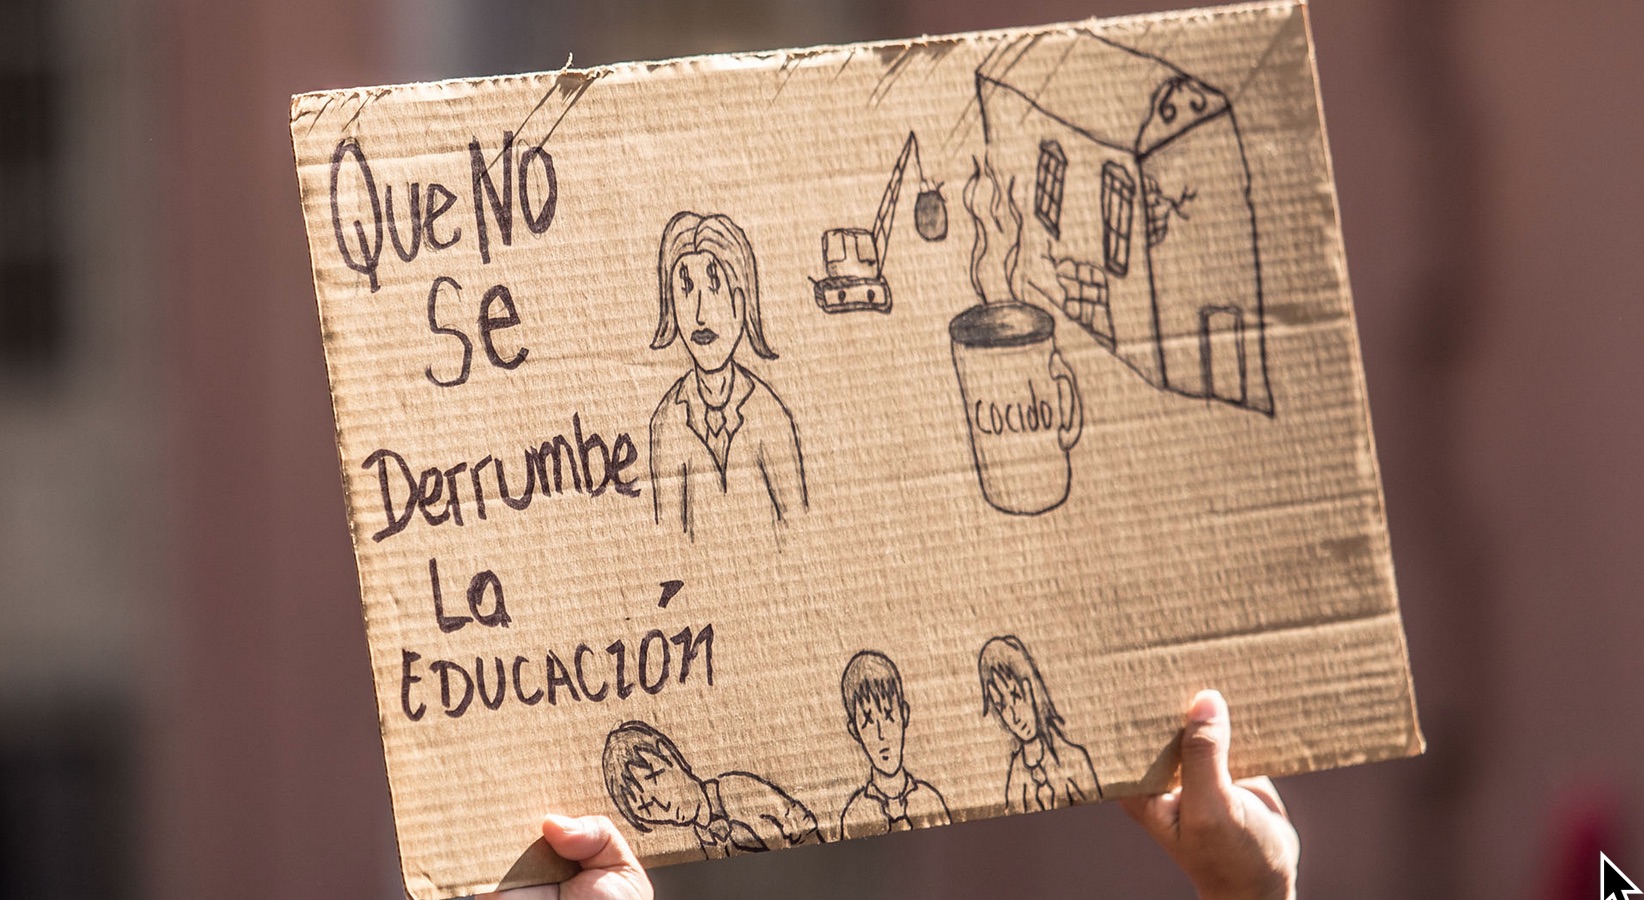 Que NO
Se
Derrumbe
La
EDUCACIÓN
cocido